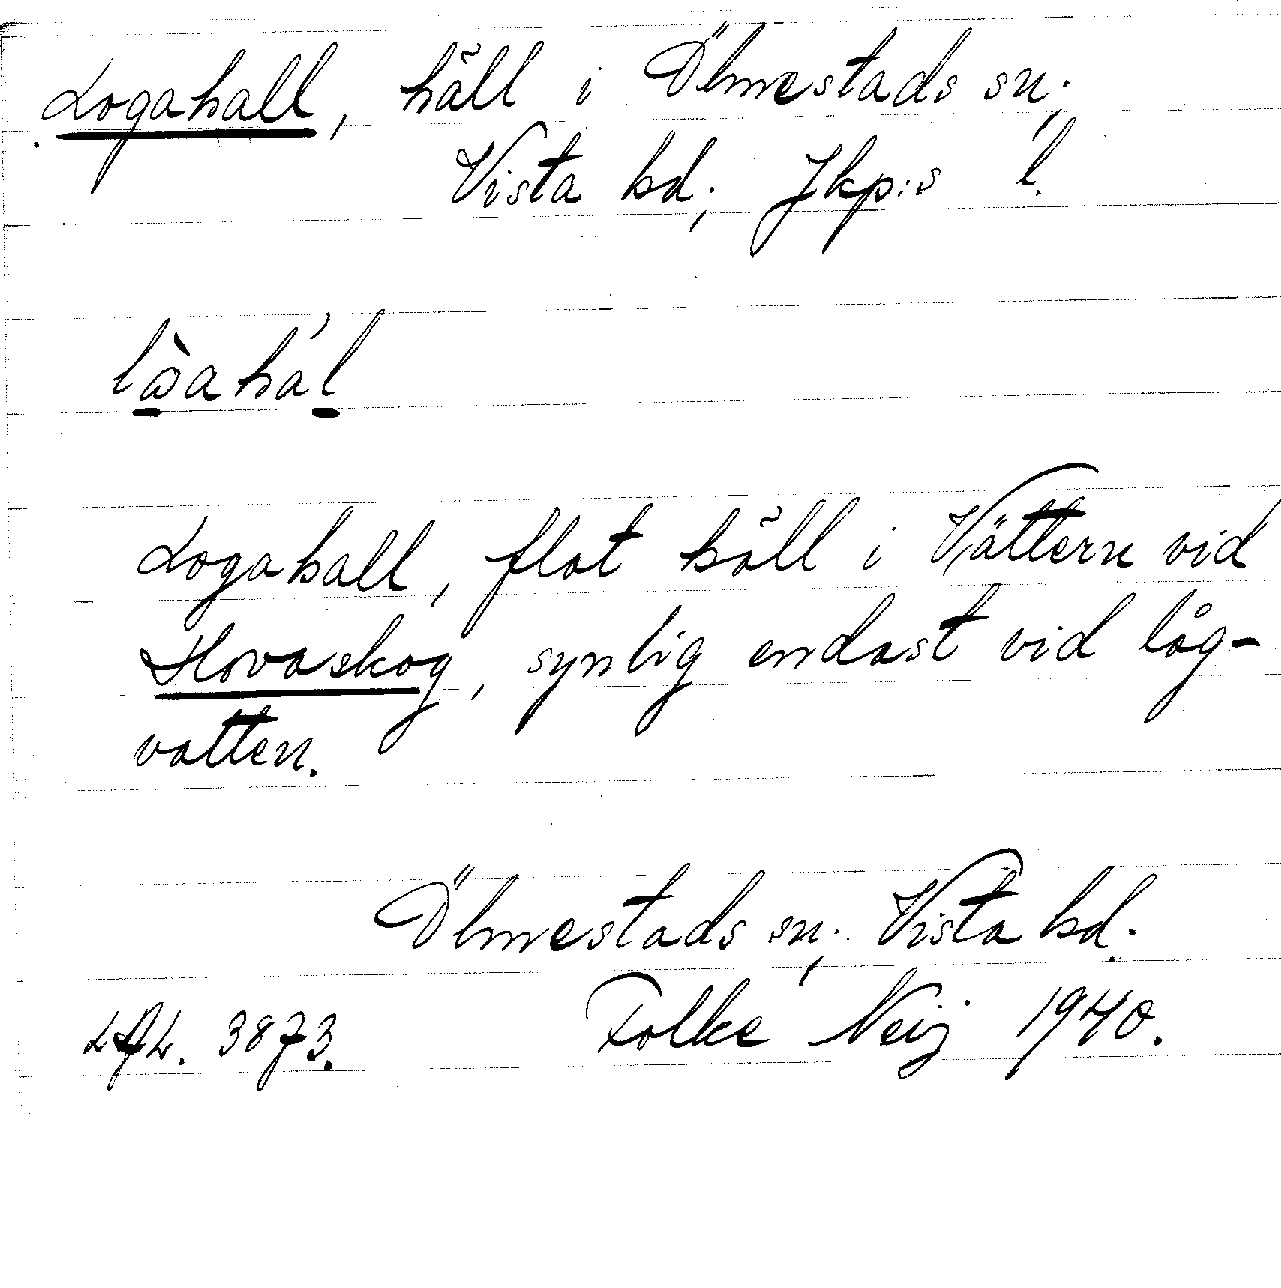 Logahall, häll i Ölmestads sn;
Vista hd; Jkp:s l.
Logahall, flat häll i Vättern vid
Hovaskog, synlig endast vid låg-
vatten.
Ölmestads sn; Vista hd.
3873. Folke Neij 1940.